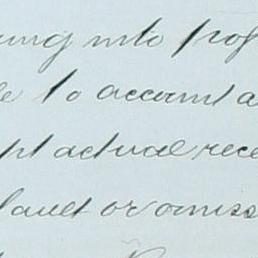 ring into prof
e to account a
pt actual rece
fault or omiss